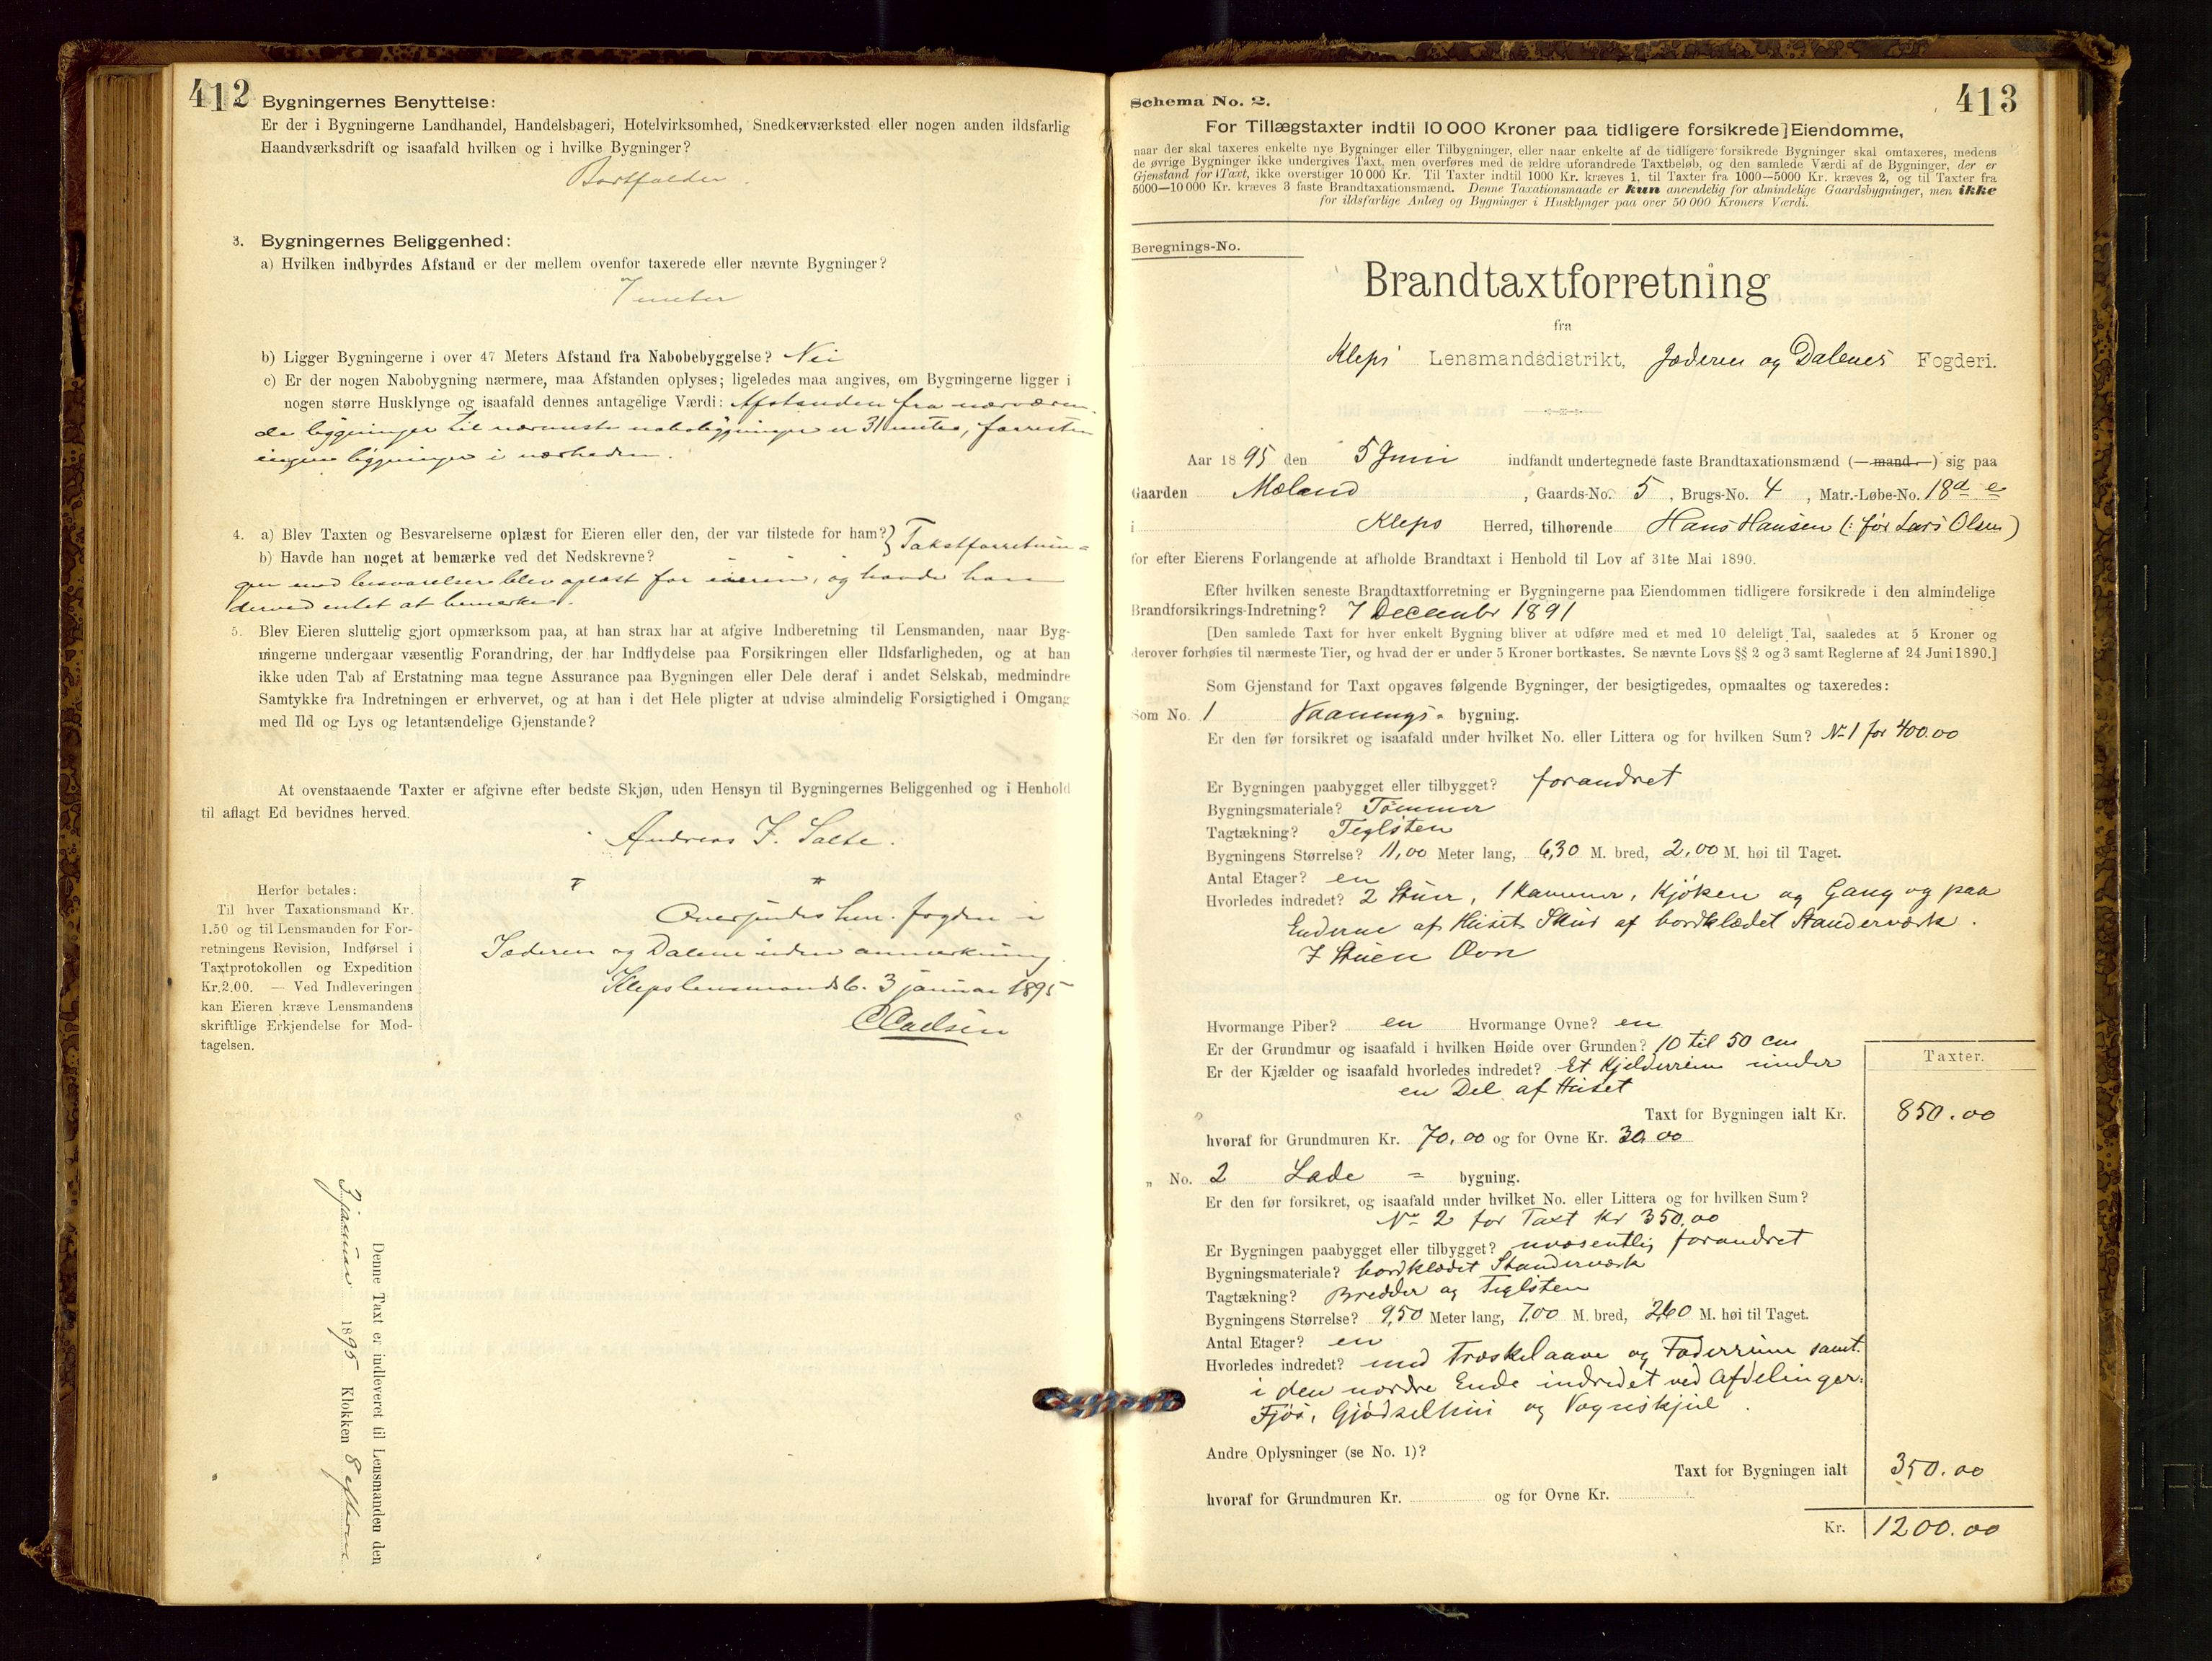 412
Bygningernes Benyttelse:
Er der i Bygningerne Landhandel, Handelsbageri, Hotelvirksomhed, Snedkerværksted eller nogen anden ildsfarlig
Haandværksdrift og isaafald hvilken og i hvilke Bygninger?
Bortfalder.
3. Bygningernes Beliggenhed:
a) Hvilken indbyrdes Afstand er der mellem ovenfor taxerede eller nævnte Bygninger?
7 meter
b) Ligger Bygningerne i over 47 Meters Afstand fra Nabobebyggelse? Nei
c) Er der nogen Nabobygning nærmere, maa Afstanden oplyses; ligeledes maa angives, om Bygningerne ligger i
nogen større Husklynge og isaafald dennes antagelige Værdi: Afstanden fra nærværen-
de bygninger til nærmeste nabobygninger er 31 meter, forresten
ingen bygninger i nærheden.
4. a) Blev Taxten og Besvarelserne oplæst for Eieren eller den, der var tilstede for ham?
b) Havde han noget at bemærke ved det Nedskrevne? } Takstforretnin=
gen med besvarelser blev oplæst for eieren, og havde han
derved intet at bemærke.
5. Blev Eieren sluttelig gjort opmærksom paa, at han strax har at afgive Indberetning til Lensmanden, naar Byg-
ningerne undergaar væsentlig Forandring, der har Indflydelse paa Forsikringen eller Ildsfarligheden, og at han
ikke uden Tab af Erstatning maa tegne Assurance paa Bygningen eller Dele deraf i andet Selskab, medmindre
Samtykke fra Indretningen er erhvervet, og at han i det Hele pligter at udvise almindelig Forsigtighed i Omgang
med Ild og Lys og letantændelige Gjenstande?
At ovenstaaende Taxter er afgivne efter bedste Skjøn, uden Hensyn til Bygningernes Beliggenhed og i Henhold
til aflagt Ed bevidnes herved.
Andreas J. Salte.
Herfor betales:
Til hver Taxationsmand Kr.
1.50 og til Lensmanden for For-
retningens Revision, Indførsel i
Taxtprotokollen og Expedition
Kr. 2.00. — Ved Indleveringen
kan Eieren kræve Lensmandens
skriftlige Erkjendelse for Mod-
tagelsen.
Oversendes hr. fogden i
Jæderen og Dalene uden anmerkning.
Klepslensmandsb. 3 januar 1895
Denne Taxt er indleveret til Lensmanden den
3 januar 1895 Klokken 8 efterm.
413
Schema No. 2.
For Tillægstaxter indtil 10 000 Kroner paa tidligere forsikrede Eiendomme,
naar der skal taxeres enkelte nye Bygninger eller Tilbygninger, eller naar enkelte af de tidligere forsikrede Bygninger skal omtaxeres, medens
de øvrige Bygninger ikke undergives Taxt, men overføres med de ældre uforandrede Taxtbeløb, og den samlede Værdi af de Bygninger, der er
Gjenstand for Taxt, ikke overstiger 10 000 Kr. Til Taxter indtil 1000 Kr. kræves 1, til Taxter fra 1000—5000 Kr. kræves 2, og til Taxter fra
5000—10 000 Kr. kræves 3 faste Brandtaxationsmænd. Denne Taxationsmaade er kun anvendelig for almindelige Gaardsbygninger, men ikke
for ildsfarlige Anlæg og Bygninger i Husklynger paa over 50 000 Kroners Værdi.
Beregnings-No.
Brandtaxtforretning
fra
Kleps Lensmandsdistrikt, Jæderen og Dalenes Fogderi.
Aar 1895 den 5 Juni indfandt undertegnede faste Brandtaxationsmænd (—mand—) sig paa
Gaarden Mæland, Gaards-No. 5, Brugs-No. 4, Matr.-Løbe-No. 18 d e
i Kleps Herred, tilhørende Hans Hansen (: før Lars Olsen)
for efter Eierens Forlangende at afholde Brandtaxt i Henhold til Lov af 31te Mai 1890.
Efter hvilken seneste Brandtaxtforretning er Bygningerne paa Eiendommen tidligere forsikrede i den almindelige
Brandforsikrings-Indretning? 7 Decembr 1891
[Den samlede Taxt for hver enkelt Bygning bliver at udføre med et med 10 deleligt Tal, saaledes at 5 Kroner og
derover forhøies til nærmeste Tier, og hvad der er under 5 Kroner bortkastes. Se nævnte Lovs §§ 2 og 3 samt Reglerne af 24 Juni 1890.]
Som Gjenstand for Taxt opgaves følgende Bygninger, der besigtigedes, opmaaltes og taxeredes:
Som No. 1 Vaanings- bygning.
Er den før forsikret og isaafald under hvilket No. eller Littera og for hvilken Sum? No 1 for 400.00
Er Bygningen paabygget eller tilbygget? forandret
Bygningsmateriale? Tømmer
Tagtækning? Teglsten
Bygningens Størrelse? 11,00 Meter lang, 6,30 M. bred, 2,00 M. høi til Taget.
Antal Etager? en
Hvorledes indredet? 2 Stuer, 1 Kammer, Kjøken og Gang og paa
Enderne af Huset Skur af bordklædet Standerværk.
I Stuen Ovn
Hvormange Piber? en Hvormange Ovne? en
Er der Grundmur og isaafald i hvilken Høide over Grunden? 10 til 50 cm
Er der Kjælder og isaafald hvorledes indredet? Et Kjelderrum under
en Del af Huset
Taxter.
Taxt for Bygningen ialt Kr. 850.00
hvoraf for Grundmuren Kr. 70,00 og for Ovne Kr. 30,00
„ No. 2 Lade = bygning.
Er den før forsikret, og isaafald under hvilket No. eller Littera og for hvilken Sum?
No 2 for Taxt Kr 350,00
Er Bygningen paabygget eller tilbygget? uvæsentlig forandret
Bygningsmateriale? bordklædet Standerværk
Tagtækning? Bredder og Teglsten
Bygningens Størrelse? 9,50 Meter lang, 7,00 M. bred, 2,60 M. høi til Taget.
Antal Etager? en
Hvorledes indredet? med Træskelaave og Foderrum samt
i den nordre Ende indredet ved Afdelinger:
Fjøs, Gjødselhus og Vognskjul.
Andre Oplysninger (se No. 1)?
Taxt for Bygningen ialt 350.00
hvoraf for Grundmuren Kr. og for Ovne Kr.
Kr. 1200.00